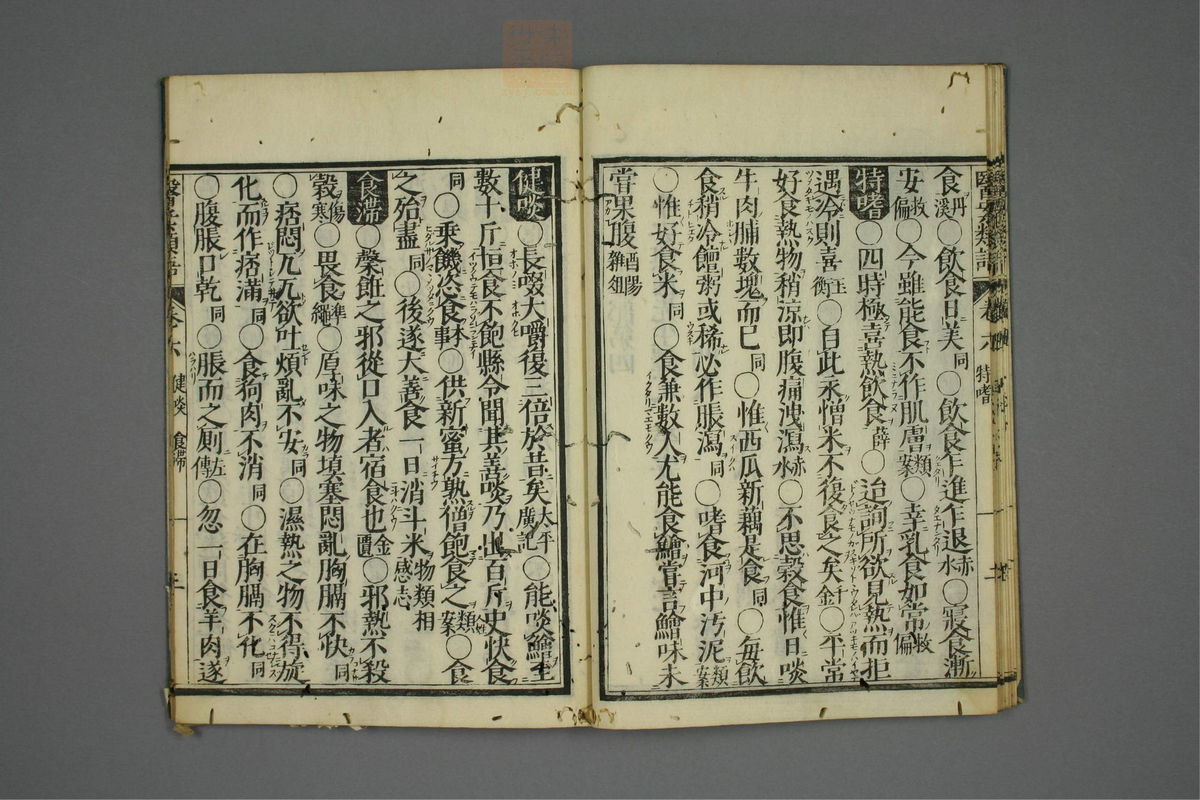 食丹溪○飲食日美同○飲食乍進乍退赤水○寢食漸
安救偏○今雖能食不作肌膚類案○幸乳食如常救偏
特嗜○四時極喜熱飲食薛○迨詢所欲見熱而拒
遇冷則喜王衡○自此永憎米不復食之矣千金○平常
好食熱物稍涼即腹痛洩瀉赤水○不思穀食惟日啖
牛肉脯數塊而已同○惟西瓜新藕是食同○每飲
食稍冷饘粥或稀必作脹瀉同○嗜食河中汚泥類案
○惟好食米同○食兼數人尤能食鱠嘗言鱠味未
嘗果腹酉陽雜俎
健啖○長啜大嚼復三倍於昔矣太平廣記○能啖鱠至
數十斤恒食不飽縣令聞其善啖乃出百斤史快食
同○乘饑恣食本事○供新蜜方熟僧飽食之類案○食
之殆盡同○後遂大善食一日消斗米物類相感志
食滯○槃飪之邪從口入者宿食也金匱○邪熱不殺
穀傷寒○畏食準繩○原味之物塡塞悶亂胸膈不快同
○痞悶兀兀欲吐煩亂不安同○濕熱之物不得旋
化而作痞滿同○食狗肉不消同○在胸膈不化同
○腹脹口乾同○脹而之厠左傳○忽一日食羊肉遂
卷六 特嗜
卷六 健啖 食滯